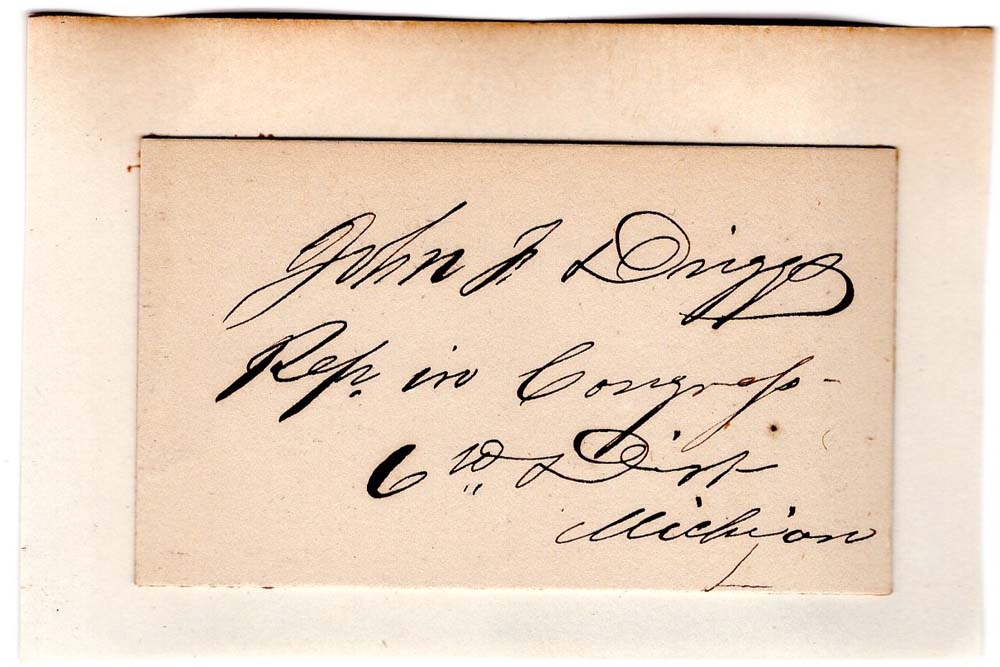 John F. Driggs
Rep. in Congress-
6th Dist
Michigan